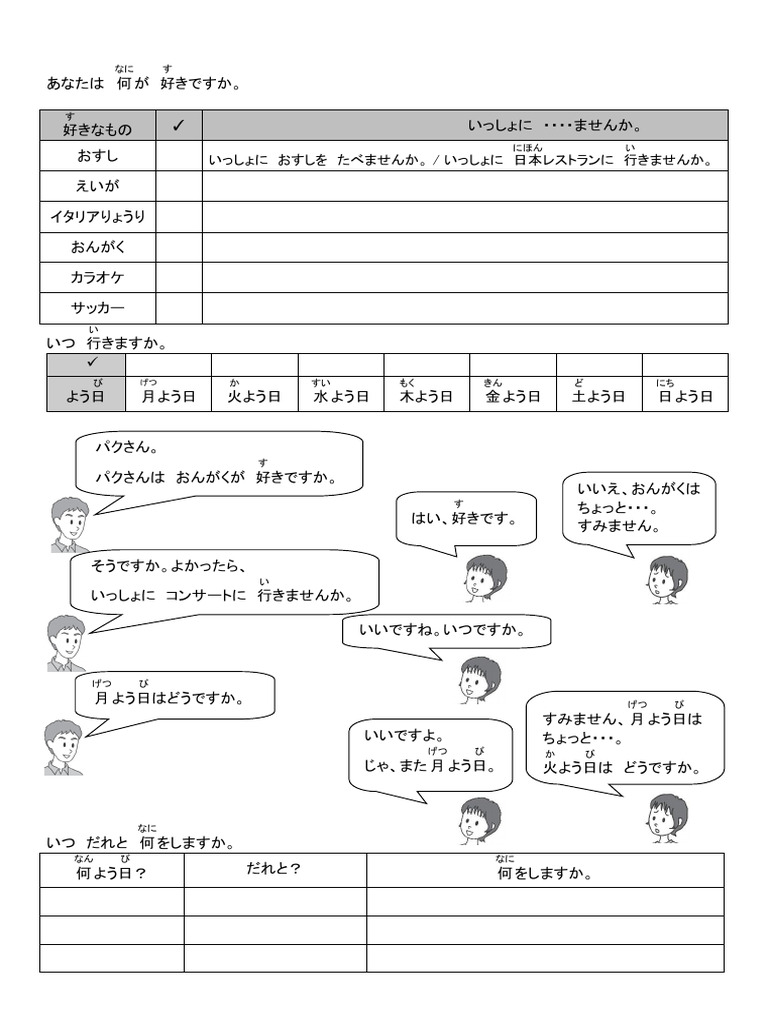 あなたは 何が 好きですか。
好きなもの ✓ いっしょに ・・・・ませんか。
おすし いっしょに おすしを たべませんか。/ いっしょに 日本レストランに 行きませんか。
えいが
イタリアりょうり
おんがく
カラオケ
サッカー
いつ 行きますか。
✓
よう日 月よう日 火よう日 水よう日 木よう日 金よう日 土よう日 日よう日
パクさん。
パクさんは おんがくが 好きですか。
はい、好きです。
いいえ、おんがくは
ちょっと・・・。
すみません。
そうですか。よかったら、
いっしょに コンサートに 行きませんか。
いいですね。いつですか。
月よう日はどうですか。
いいですよ。
じゃ、また月よう日。
すみません、月よう日は
ちょっと・・・。
火よう日は どうですか。
いつ だれと 何をしますか。
何よう日? だれと? 何をしますか。